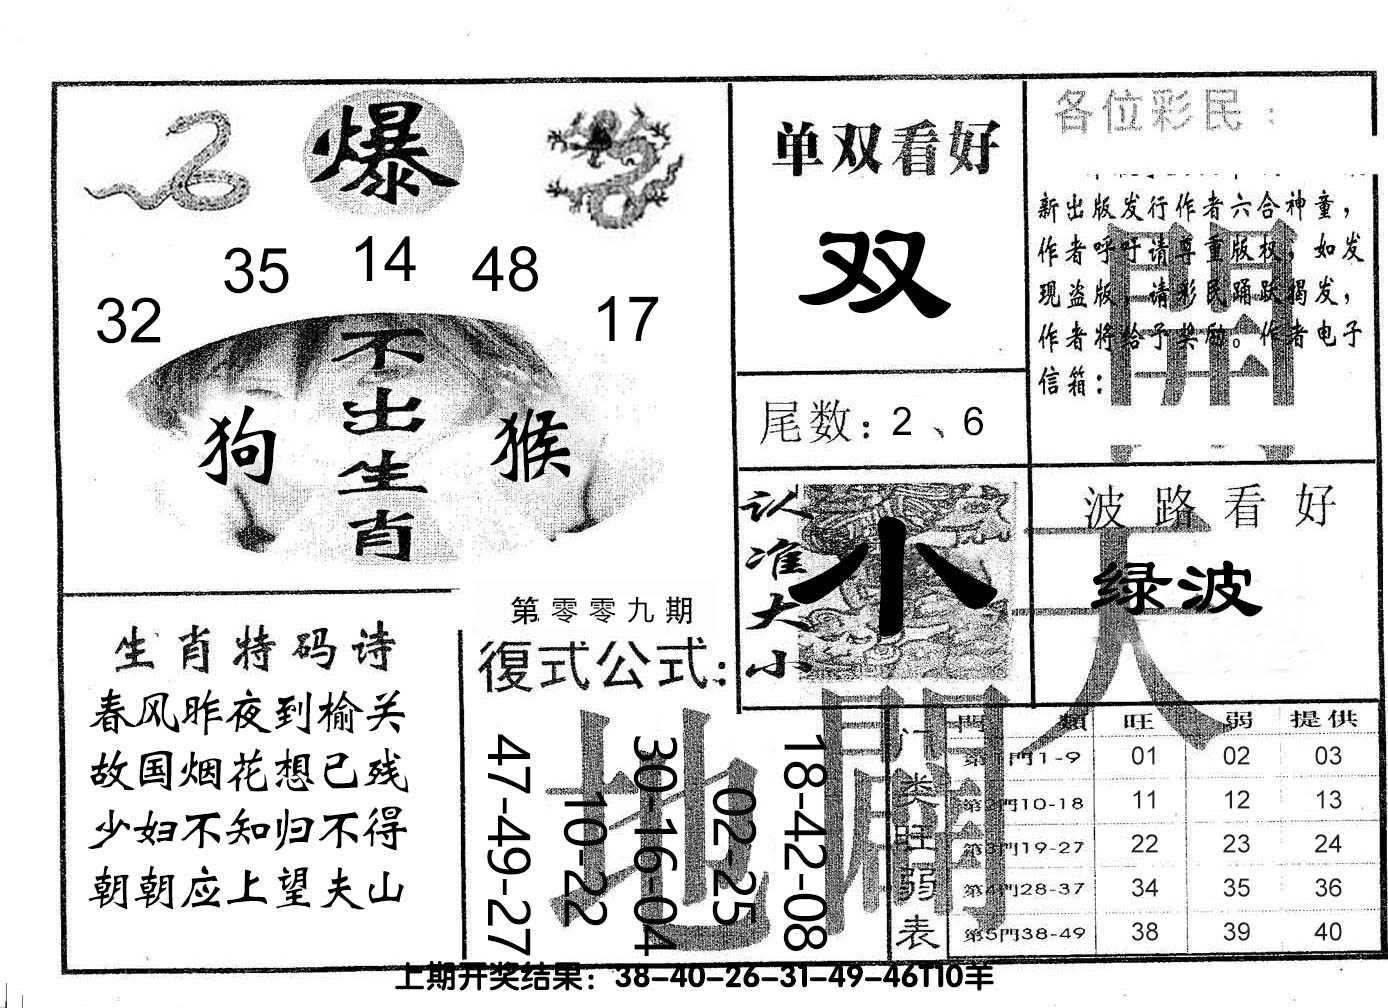 爆
32
35
14
48
17
不出生肖
狗
猴
生肖特码诗
春风昨夜到榆关
故国烟花想已残
少妇不知归不得
朝朝应上望夫山
第零零九期
復式公式:
47-49-27
10-22
30-16-04
02-25
18-42-08
单双看好
双
尾数: 2、6
认准大小
小
各位彩民:
新出版发行作者六合神童,
作者呼吁请尊重版权,如发
现盗版,请彩民踊跃揭发,
作者将给予奖励。作者电子
信箱:
波路看好
绿波
天
地
開
门类旺弱表
門類 旺 弱 提供
第1門1-9 01 02 03
第2門10-18 11 12 13
第3門19-27 22 23 24
第4門28-37 34 35 36
第5門38-49 38 39 40
上期开奖结果:38-40-26-31-49-46T10羊